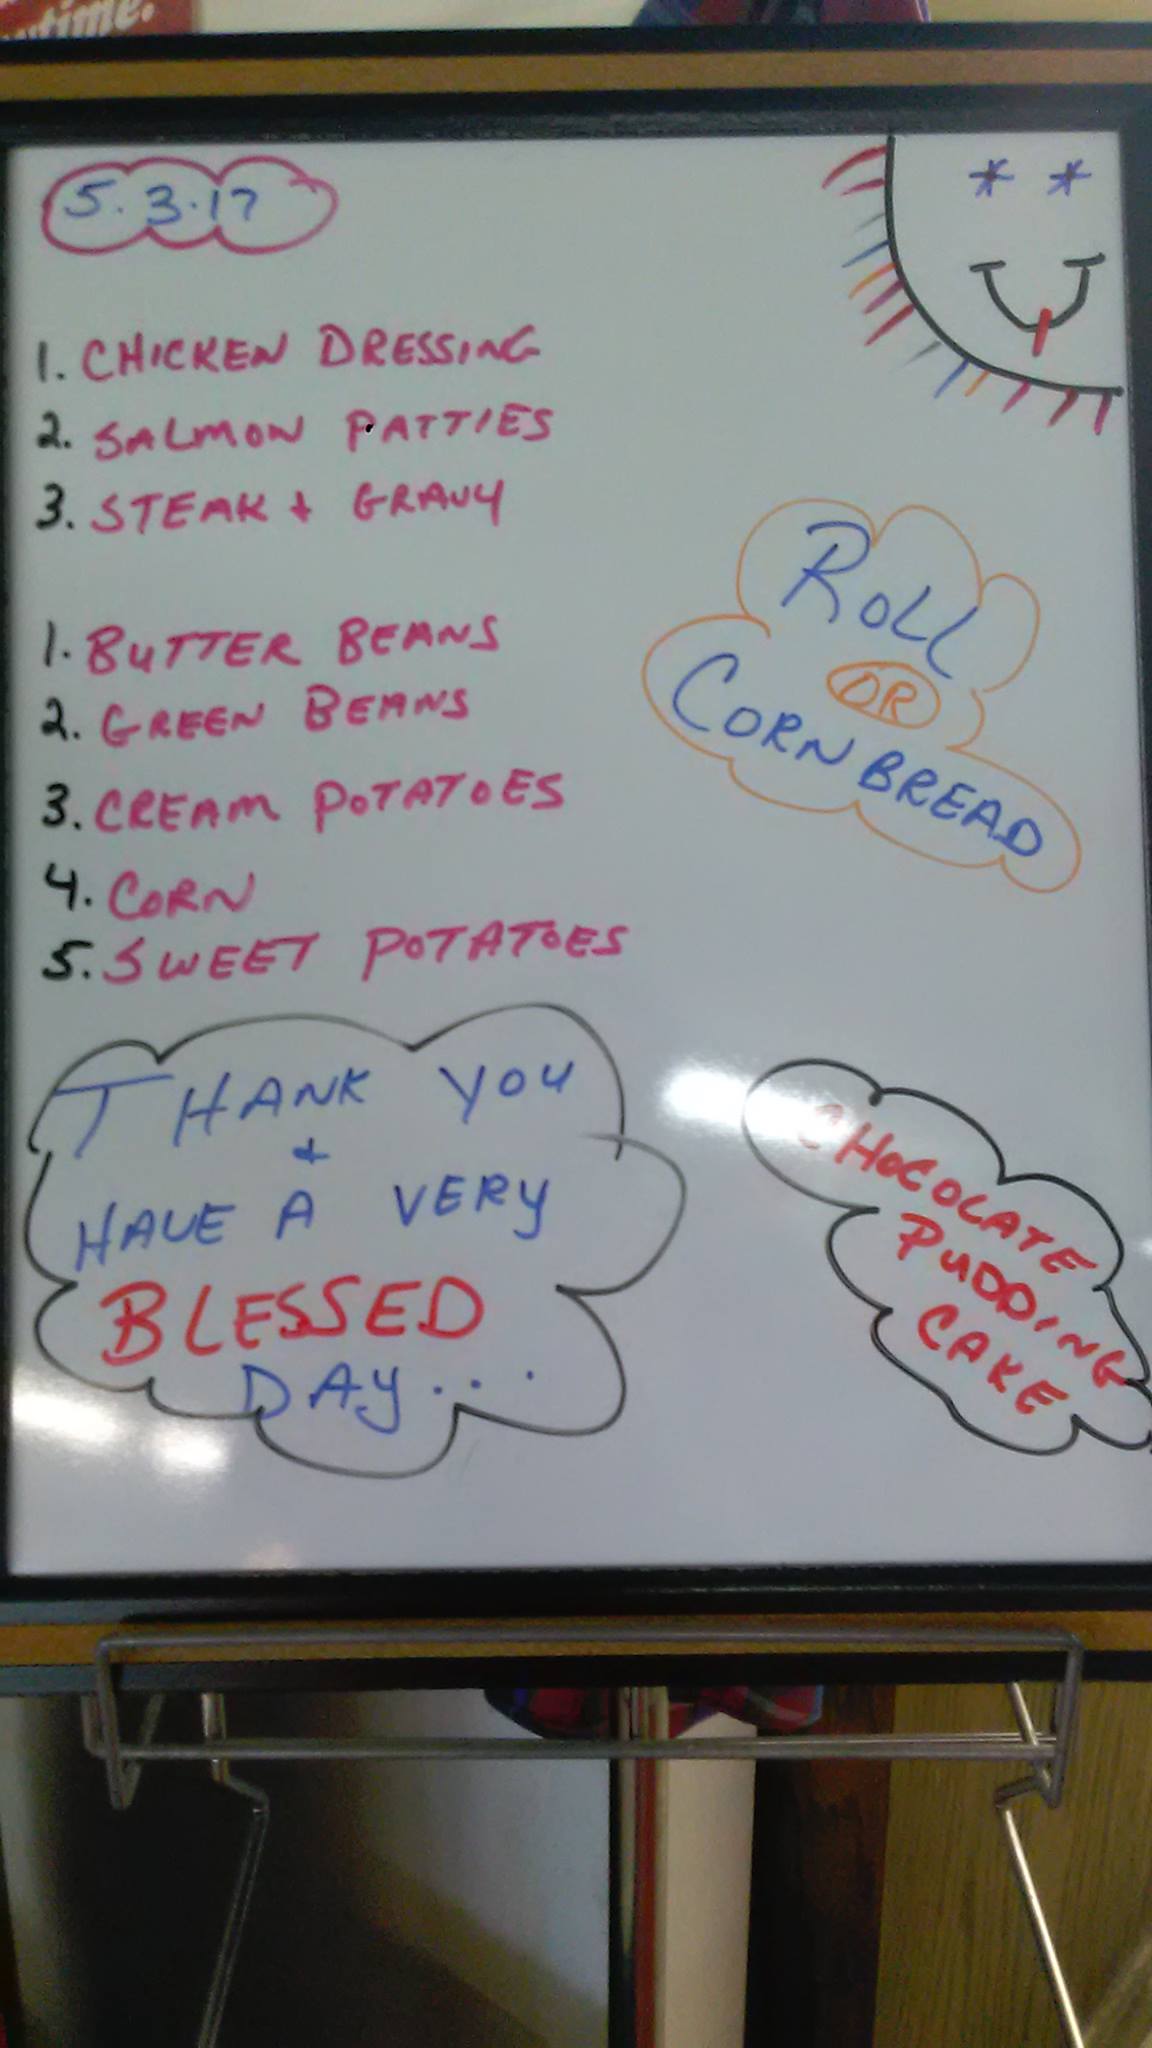 time.
5.3.17
1. CHICKEN DRESSING
2. SALMON PATTIES
3. STEAK + GRAVY
1. BUTTER BEANS
2. GREEN BEANS
3. CREAM POTATOES
4. CORN
5. SWEET POTATOES
ROLL
OR
CORN BREAD
THANK YOU
+
HAVE A VERY
BLESSED
DAY...
CHOCOLATE
PUDDING
CAKE